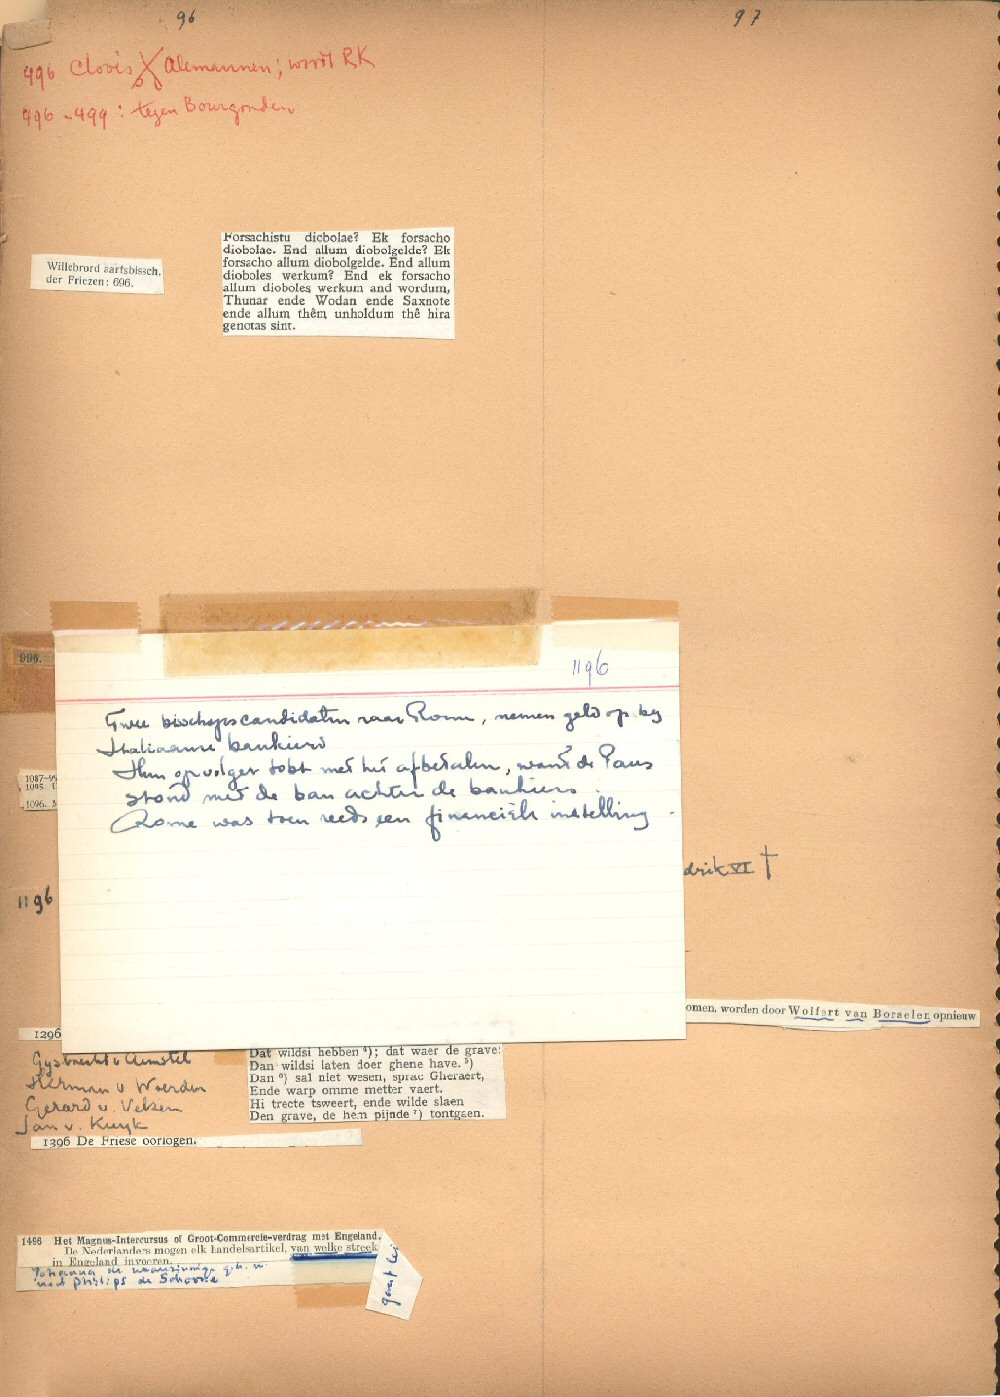 96
97
496 Clovis X Alemannen; wordt RK
496-499: tegen Bourgonden
Willebrord aartsbissch.
der Friezen: 696.
Forsachistu diobolae? Ek forsacho
diobolae. End allum diobolgelde? Ek
forsacho allum diobolgelde. End allum
dioboles werkum? End ek forsacho
allum dioboles werkum and wordum,
Thunar ende Wodan ende Saxnote
ende allum thêm unholdum thê hira
genotas sint.
996.
1196
Twee bisschopscandidaten naar Rome, nemen geld op bij
Italiaanse bankiers
Hun opvolger tobt met het afbetalen, want de Paus
stond met de ban achter de bankiers.
Rome was toen reeds een financiële instelling.
1087-99
1095.
1096.
1196
drik VI †
omen, worden door Wolfert van Borselen opnieuw
1296
Gysbrecht v Amstel
Herman v Woerden
Gerard v. Velzen
Jan v. Kuyk
Dat wildsi hebben ⁴); dat waer de grave:
Dan wildsi laten doer ghene have. ⁵)
Dan ⁶) sal niet wesen, sprac Gheraert,
Ende warp omme metter vaert.
Hi trecte tsweert, ende wilde slaen
Den grave, de hem pijnde ⁷) tontgaen.
1396 De Friese oorlogen.
1496 Het Magnus-Intercursus of Groot-Commercie-verdrag met Engeland.
De Nederlanders mogen elk handelsartikel, van welke streek
in Engeland invoeren.
Johanna de waanzinnige geh. m.
met Philips de Schoone